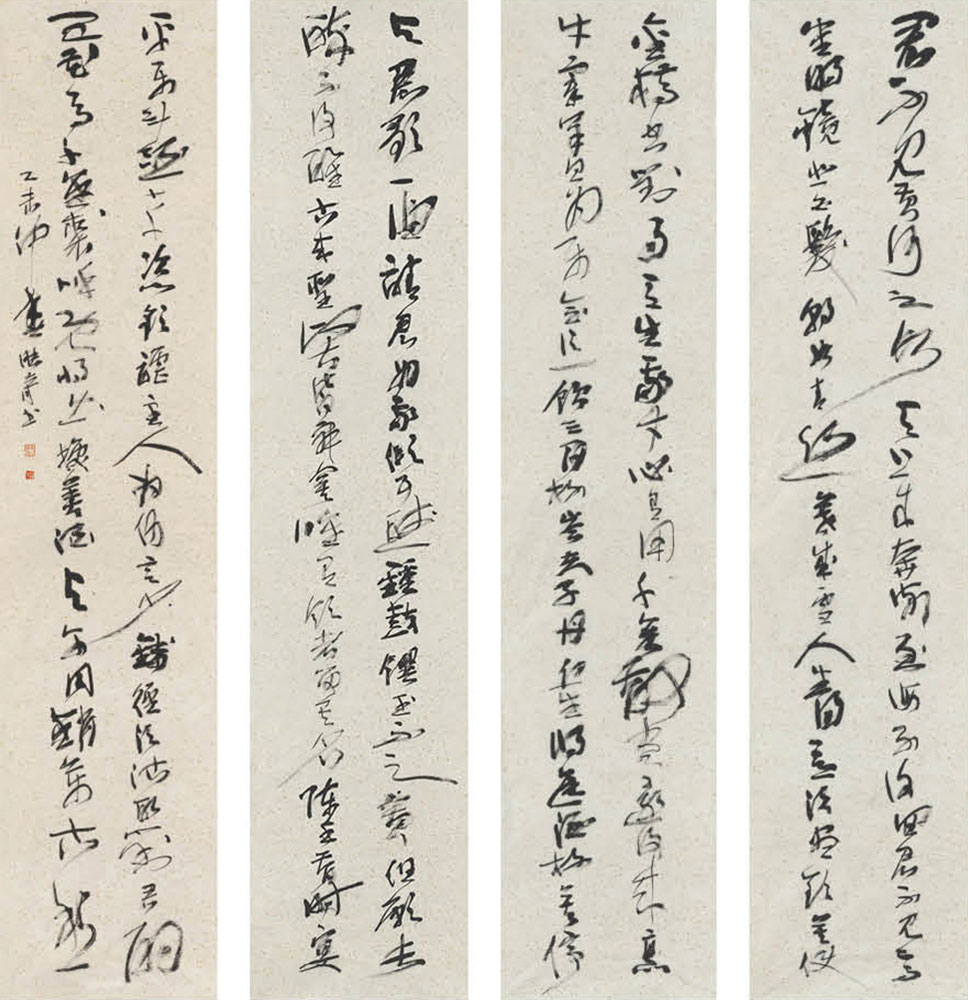 君不見黃河之水天上來奔流到海不復回君不見高
堂明鏡悲白髮朝如青絲暮成雪人生得意須盡歡莫使
金樽空對月天生我才必有用千金散盡還復來烹
牛宰羊且為樂會須一飲三百杯岑夫子丹丘生將進酒杯莫停
與君歌一曲請君為我傾耳聽鐘鼓饌玉不足貴但願長
醉不復醒古來聖賢皆寂寞唯有飲者留其名陳王昔時宴
平樂斗酒十千恣歡謔主人為何言少錢徑須沽取對君酌
五花馬千金裘呼兒將出換美酒與爾同銷萬古愁
乙未仲書